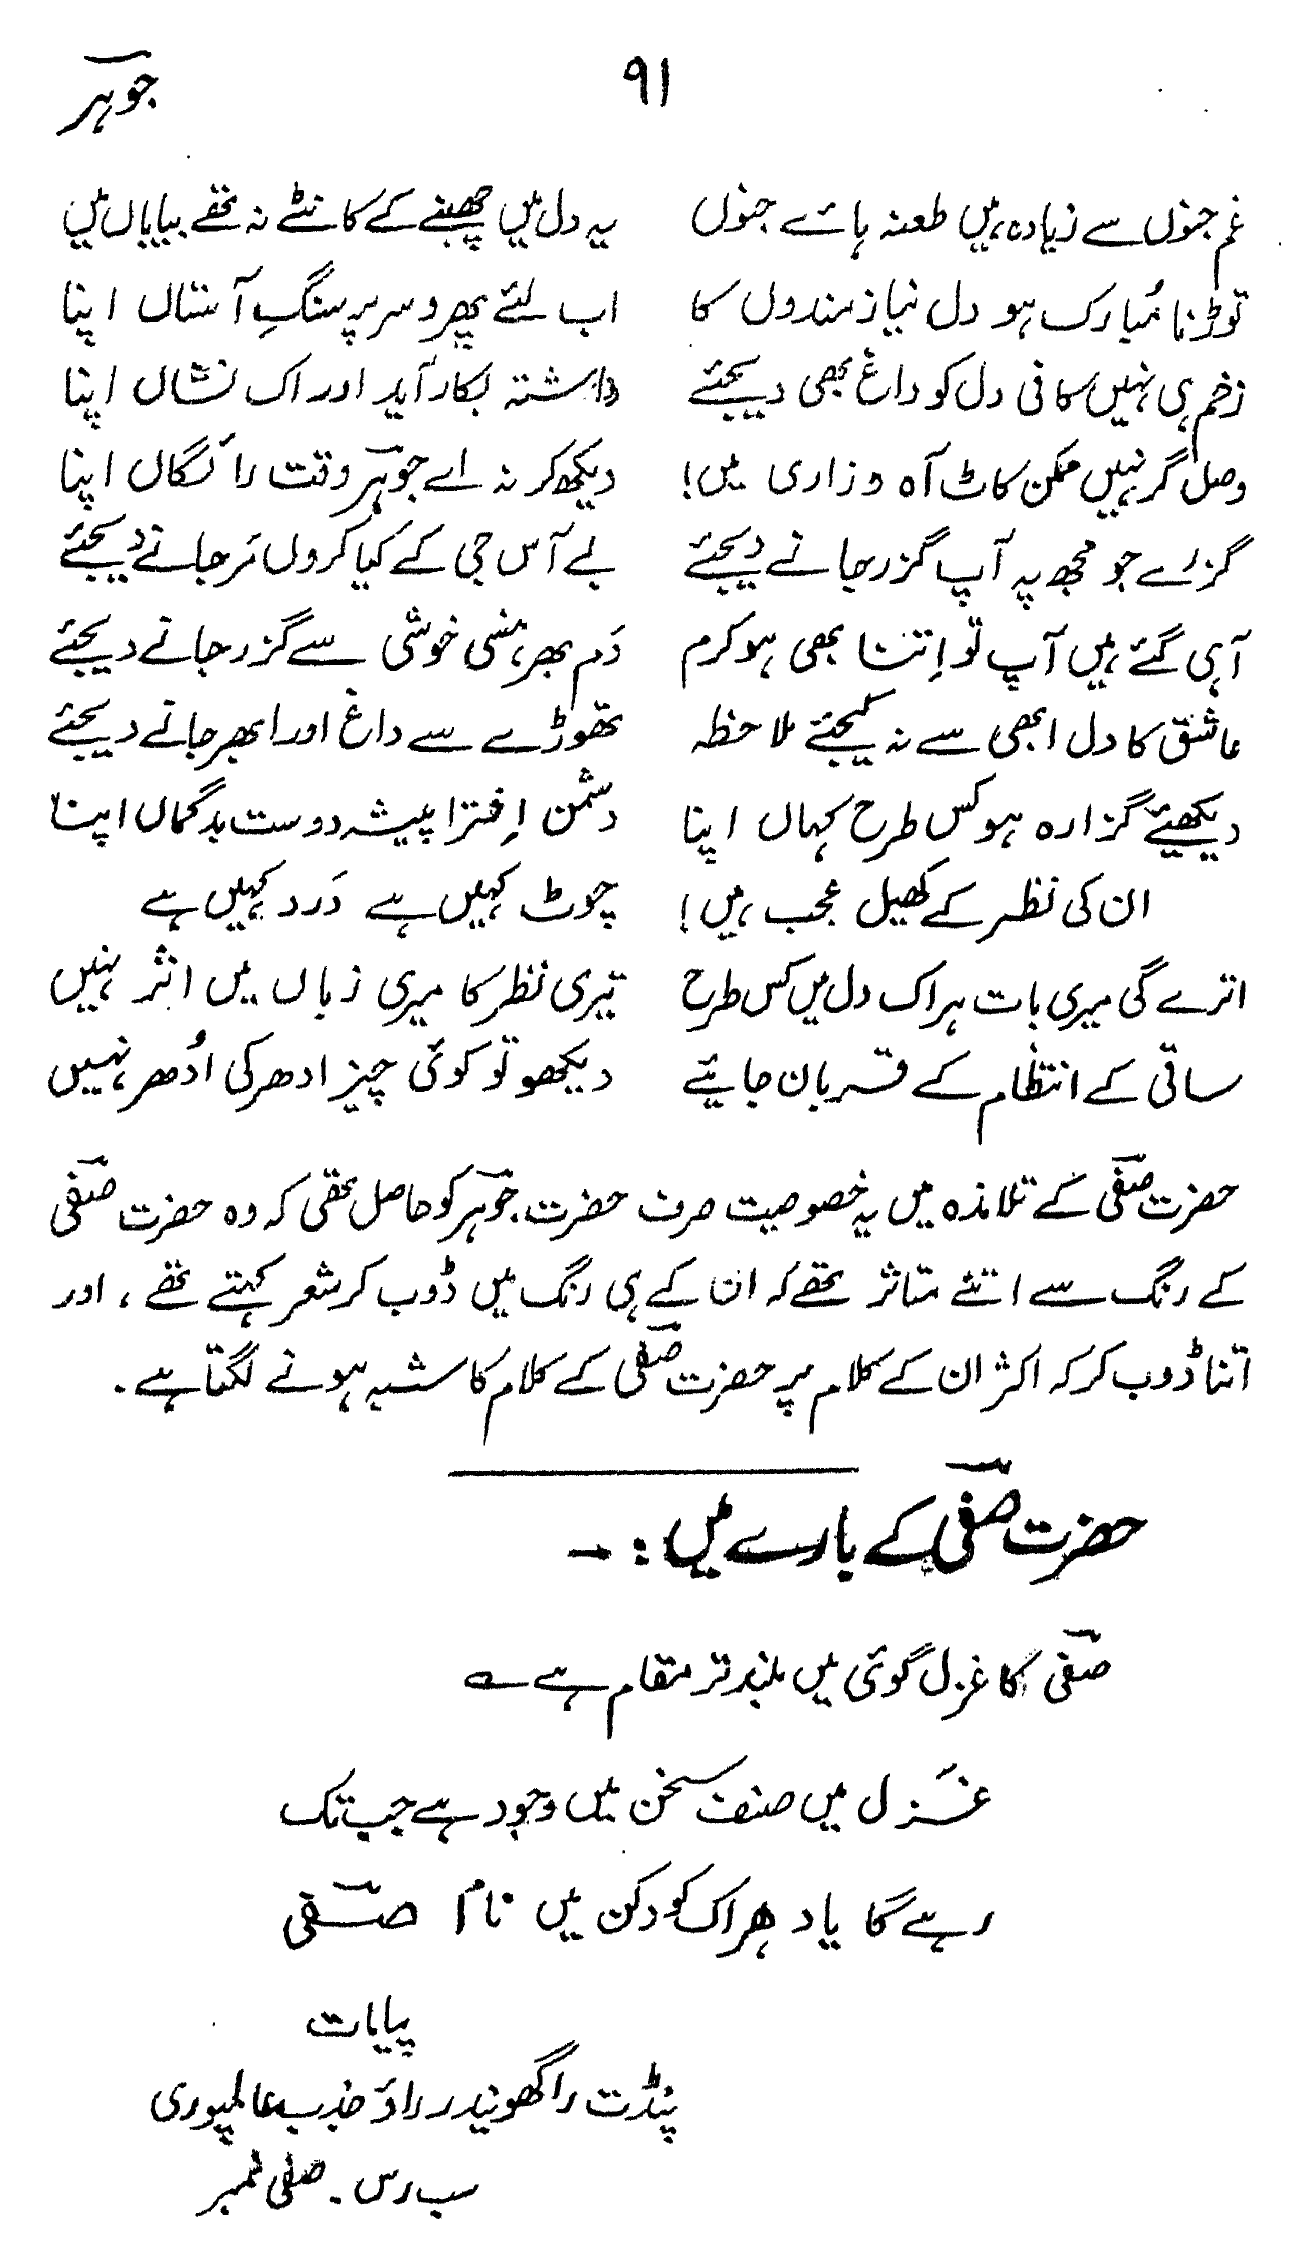 ۹۱
جوہر
غم جنوں سے زیادہ ہیں طعنہ ہائے جنوں یہ دل میں چھبنے کے کانٹے نہ تھے بیاباں میں
توڑنا مُبارک ہو دل نیاز مندوں کا اب لئے پھرو سر پر سنگِ آستاں اپنا
زخم ہی نہیں کافی دل کو داغ بھی دیجئے داشتہ بکار آید اور اک نشاں اپنا
وصل گر نہیں ممکن کاٹ آہ و زاری میں! دیکھ کر نہ اے جوہر وقت رائگاں اپنا
گزرے جو مجھ پہ آپ گزر جانے دیجئے بے آس جی کے کیا کروں مَر جانے دیجئے
آہی گئے ہیں آپ تو اِتنا بھی ہو کرم دَم بھر ہنسی خوشی سے گزر جانے دیجئے
عاشق کا دل ابھی سے نہ کیجئے ملاحظہ تھوڑے سے داغ اور ابھر جانے دیجئے
دیکھیئے گزارہ ہو کس طرح کہاں اپنا دشمن اِفترا پیشہ دوست بدگماں اپنا
ان کی نظر کے کھیل عجب ہیں! چوٹ کہیں ہے دَرد کہیں ہے
اترے گی میری بات ہر اک دل میں کس طرح تیری نظر کا میری زباں میں اثر نہیں
ساقی کے انتظام کے قربان جایئے دیکھو تو کوئی چیز ادھر کی اُدھر نہیں
حضرت صفی کے تلامذہ میں یہ خصوصیت صرف حضرت جوہر کو حاصل تھی کہ وہ حضرت صفی
کے رنگ سے اتنے متاثر تھے کہ ان کے ہی رنگ میں ڈوب کر شعر کہتے تھے ، اور
اتنا ڈوب کر کہ اکثر ان کے کلام پر حضرت صفی کے کلام کا شبہ ہونے لگتا ہے .
حضرت صفی کے بارے میں : ـ
صفی کا غزل گوئی میں بلند تر مقام ہے ؎
غزل میں صنف سخن میں وجود ہے جب تک
رہے گا یاد ہر اک کو دکن میں نام صفی
پیامات
پنڈت راگھویندر راؤ جذب عالمپوری
سب رس . صفی نمبر